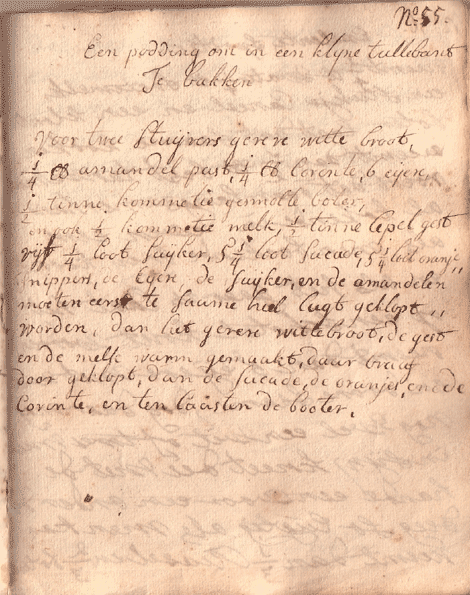 No. 55.
Een podding om in een klyne tullebant
Te bakken
Voor twee stuijvers gerere witte broot,
1/4 ℔ amandel past, 1/4 ℔ Corente, 6 eijere,
1/2 tinne kommetie gesmolte boter,
en ook 1/2 kommetie melk, 1/2 tinne lepel gest
vijf 1/4 loot suijker, 5 1/4 loot sucade, 5 1/4 loot oranje
snippers, de Eijere, de suijker, en de amandelen
moeten eerst te saame heel lugt geklopt ,,
worden, dan het gerere wittebroot, de gest
en de melk warm gemaakt, daar
door geklopt, dan de sucade, de oranjes, en de
Corinte, en ten laasten de booter.